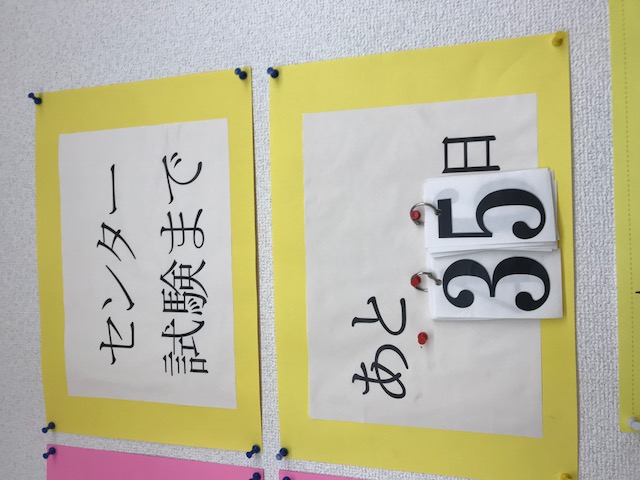 センター
試験まで
あと
35日